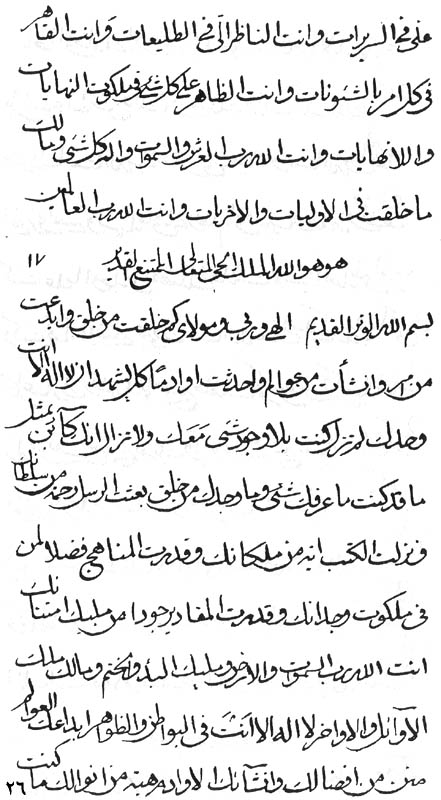 على فى السريرات وانت الناظر الى فى الطليعات وانت القاهر
فى كل امر بالشئونات وانت الظاهر على كل شئ فى ملكوت النهايات
واللانهايات وانت الله رب العرش والسموات واله كل شئ ومالك
ما خلقت فى الاوليات والاخريات وانت الله رب العالمين
هو هو الله الملك الحى المتعالى الممتنع القدير ١٧
بسم الله الوتر القديم الهى وربى ومولاى كم خلقت من خلق وابدعت
من امر وانشأت من عوالم واحدثت اوادماً كل يشهد ان لا اله الا انت
وحدك لم تزل كنت بلا وجود شئ معك ولا تزال انك كائن بمثل
ما قد كنت ما عرفك شئ وما وحدك من خلق بعثت الرسل رحمة من سلطانك
ونزلت الكتب اية من ملكانك وقدرت المناهج فضلا لمن
فى ملكوت وحدانك وقدرت المقادير جودا من مليك امتنانك
انت الله رب السموات والارض ومليك البدء والختم ومالك ملك
الآوائل والاواخر لا اله الا انت فى البواطن والظواهر ابداعك العوالم
من من افضالك وانشائك الاوادم هبة من انوالك ما كنت
٢٦